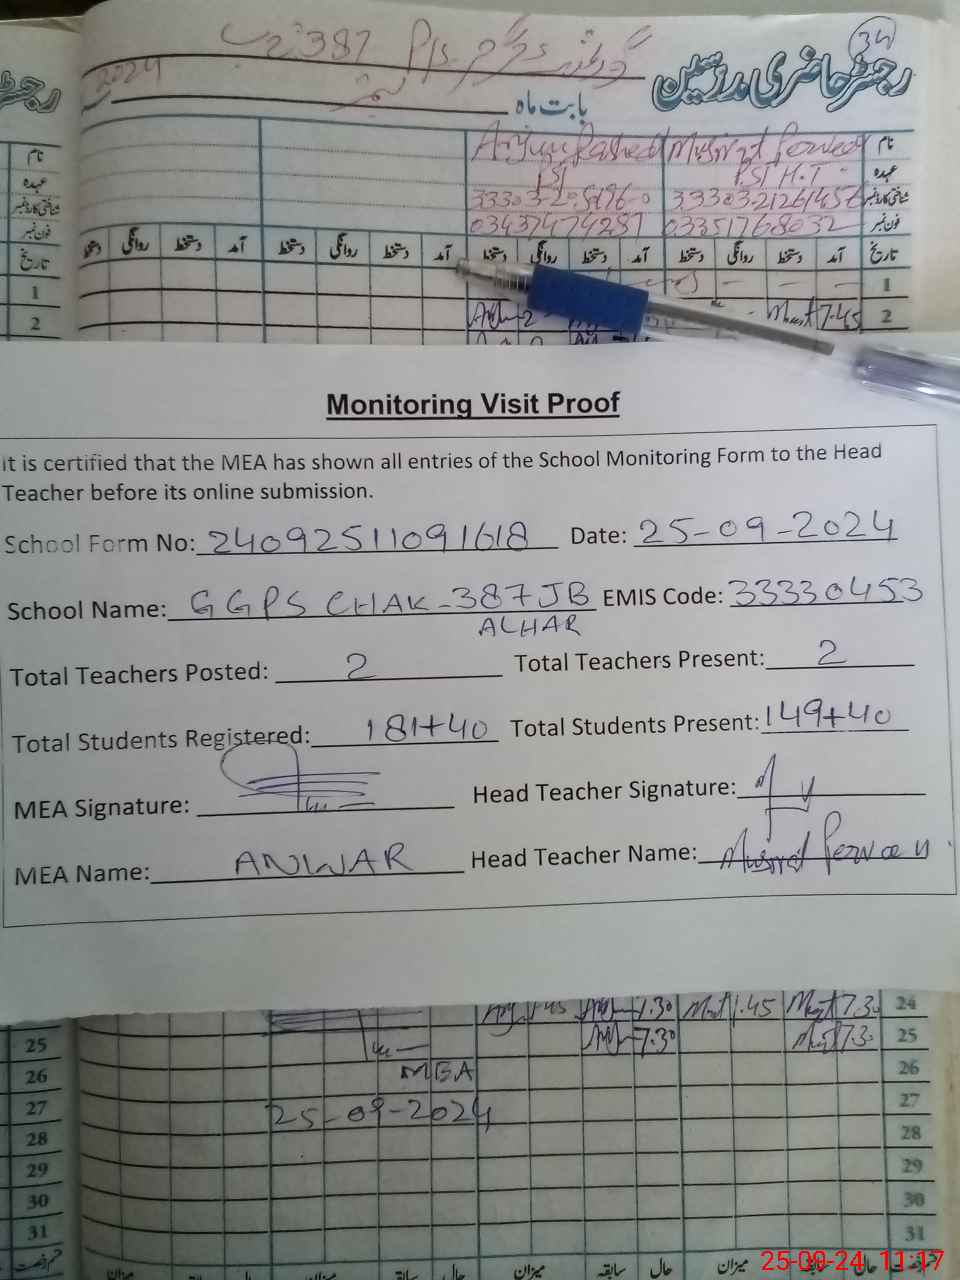 34
رجسٹر حاضری مدرسین
387
2024
بابت ماہ
نام
Musirat Perveen
عہدہ PST H.T
PST
شناختی کارڈ نمبر
فون نمبر 03351768032 03437474287
تاریخ آمد دستخط روانگی دستخط آمد دستخط روانگی دستخط آمد دستخط روانگی دستخط آمد دستخط روانگی دستخط
1
2 7.45
Monitoring Visit Proof
it is certified that the MEA has shown all entries of the School Monitoring Form to the Head
Teacher before its online submission.
School Form No: 24092511091618 Date: 25-09-2024
School Name: GGPS CHAK-387JB EMIS Code: 33330453
ALHAR
Total Teachers Posted: 2 Total Teachers Present: 2
Total Students Registered: 181+40 Total Students Present: 149+40
MEA Signature: Head Teacher Signature:
MEA Name: ANWAR Head Teacher Name: Musirat Perveen
24 7.30 1.45 7.30 1.45
25 7.30 7.30
26 MEA
27 25-09-2024
28
29
30
31
میزان سابقہ حال میزان سابقہ حال
25-09-24 11:17